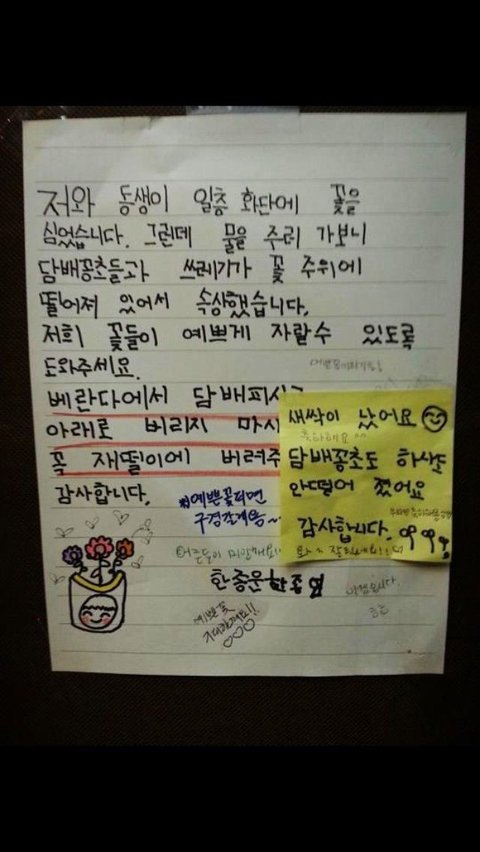 저와 동생이 일층 화단에 꽃을
심었습니다. 그런데 물을 주러 가보니
담배꽁초들과 쓰레기가 꽃 주위에
떨어져 있어서 속상했습니다.
저희 꽃들이 예쁘게 자랄수 있도록
도와주세요.
베란다에서 담배피시고
아래로 버리지 마시
꼭 재떨이에 버려주
감사합니다.
예쁜꽃피면
구경갈게용~
어른들이 미안해요!
한종운
예쁜 꽃
기대할께요!!
새싹이 났어요
축하해요 ^^
담배꽁초도 하나도
안떨어 졌어요
감사합니다.
와~ 잘됐네요!!